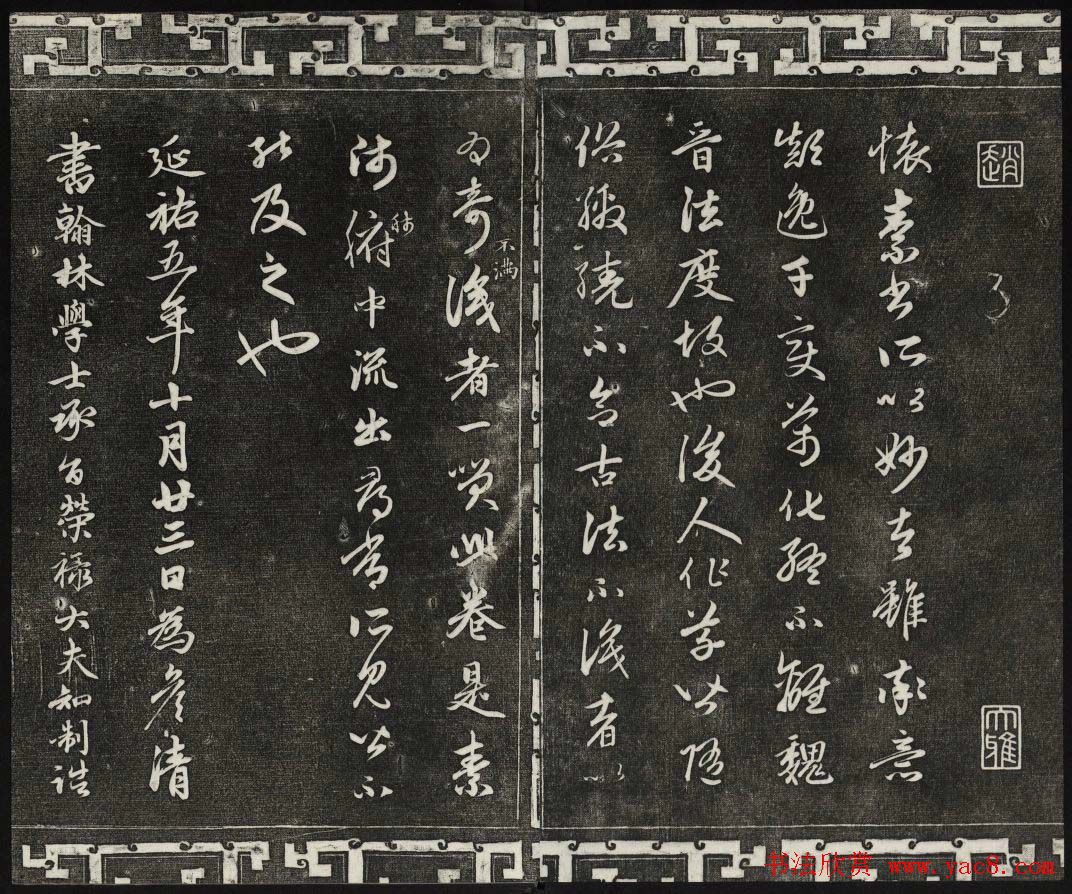 趙
大雅
懷素書所以妙者雖率意
顛逸千變萬化終不離魏
晉法度故也後人作草皆隨
俗繳繞不合古法不識者以
為奇識者不滿一笑此卷是素
師肺腑中流出尋常所見皆不
能及之也
延祐五年十月廿三日為彥清
書翰林學士承旨榮祿大夫知制誥
书法欣赏 www.yac8.com